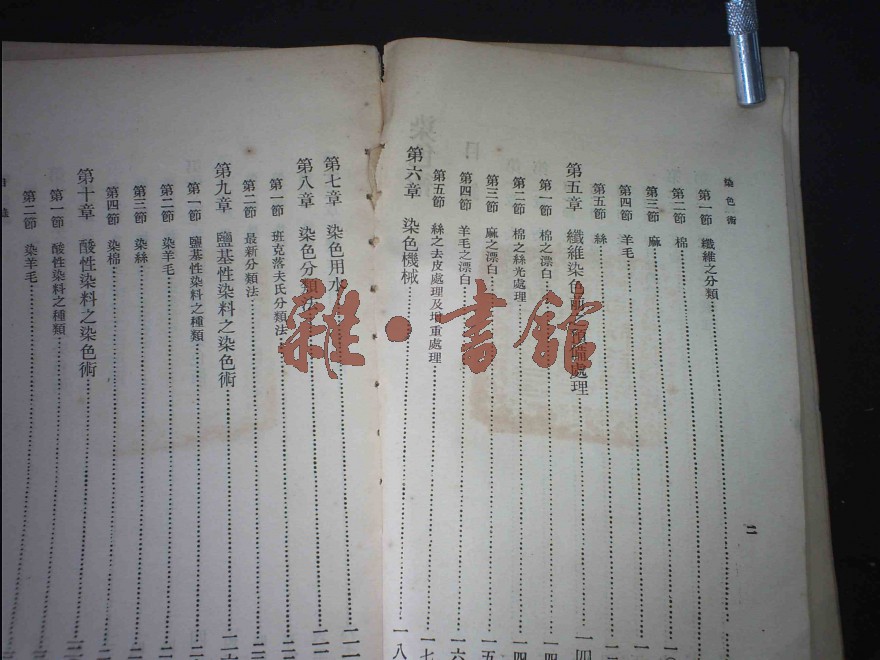 染色術
第一節 纖維之分類
第二節 棉
第三節 麻
第四節 羊毛
第五節 絲
第五章 纖維染色前之預備處理
第一節 棉之漂白
第二節 棉之絲光處理
第三節 麻之漂白
第四節 羊毛之漂白
第五節 絲之去皮處理及增重處理
第六章 染色機械
二
第七章 染色用水
第八章 染色分類法
第一節 班克落夫氏分類法
第二節 最新分類法
第九章 鹽基性染料之染色術
第一節 鹽基性染料之種類
第二節 染羊毛
第三節 染絲
第四節 染棉
第十章 酸性染料之染色術
第一節 酸性染料之種類
第二節 染羊毛
雜·書館